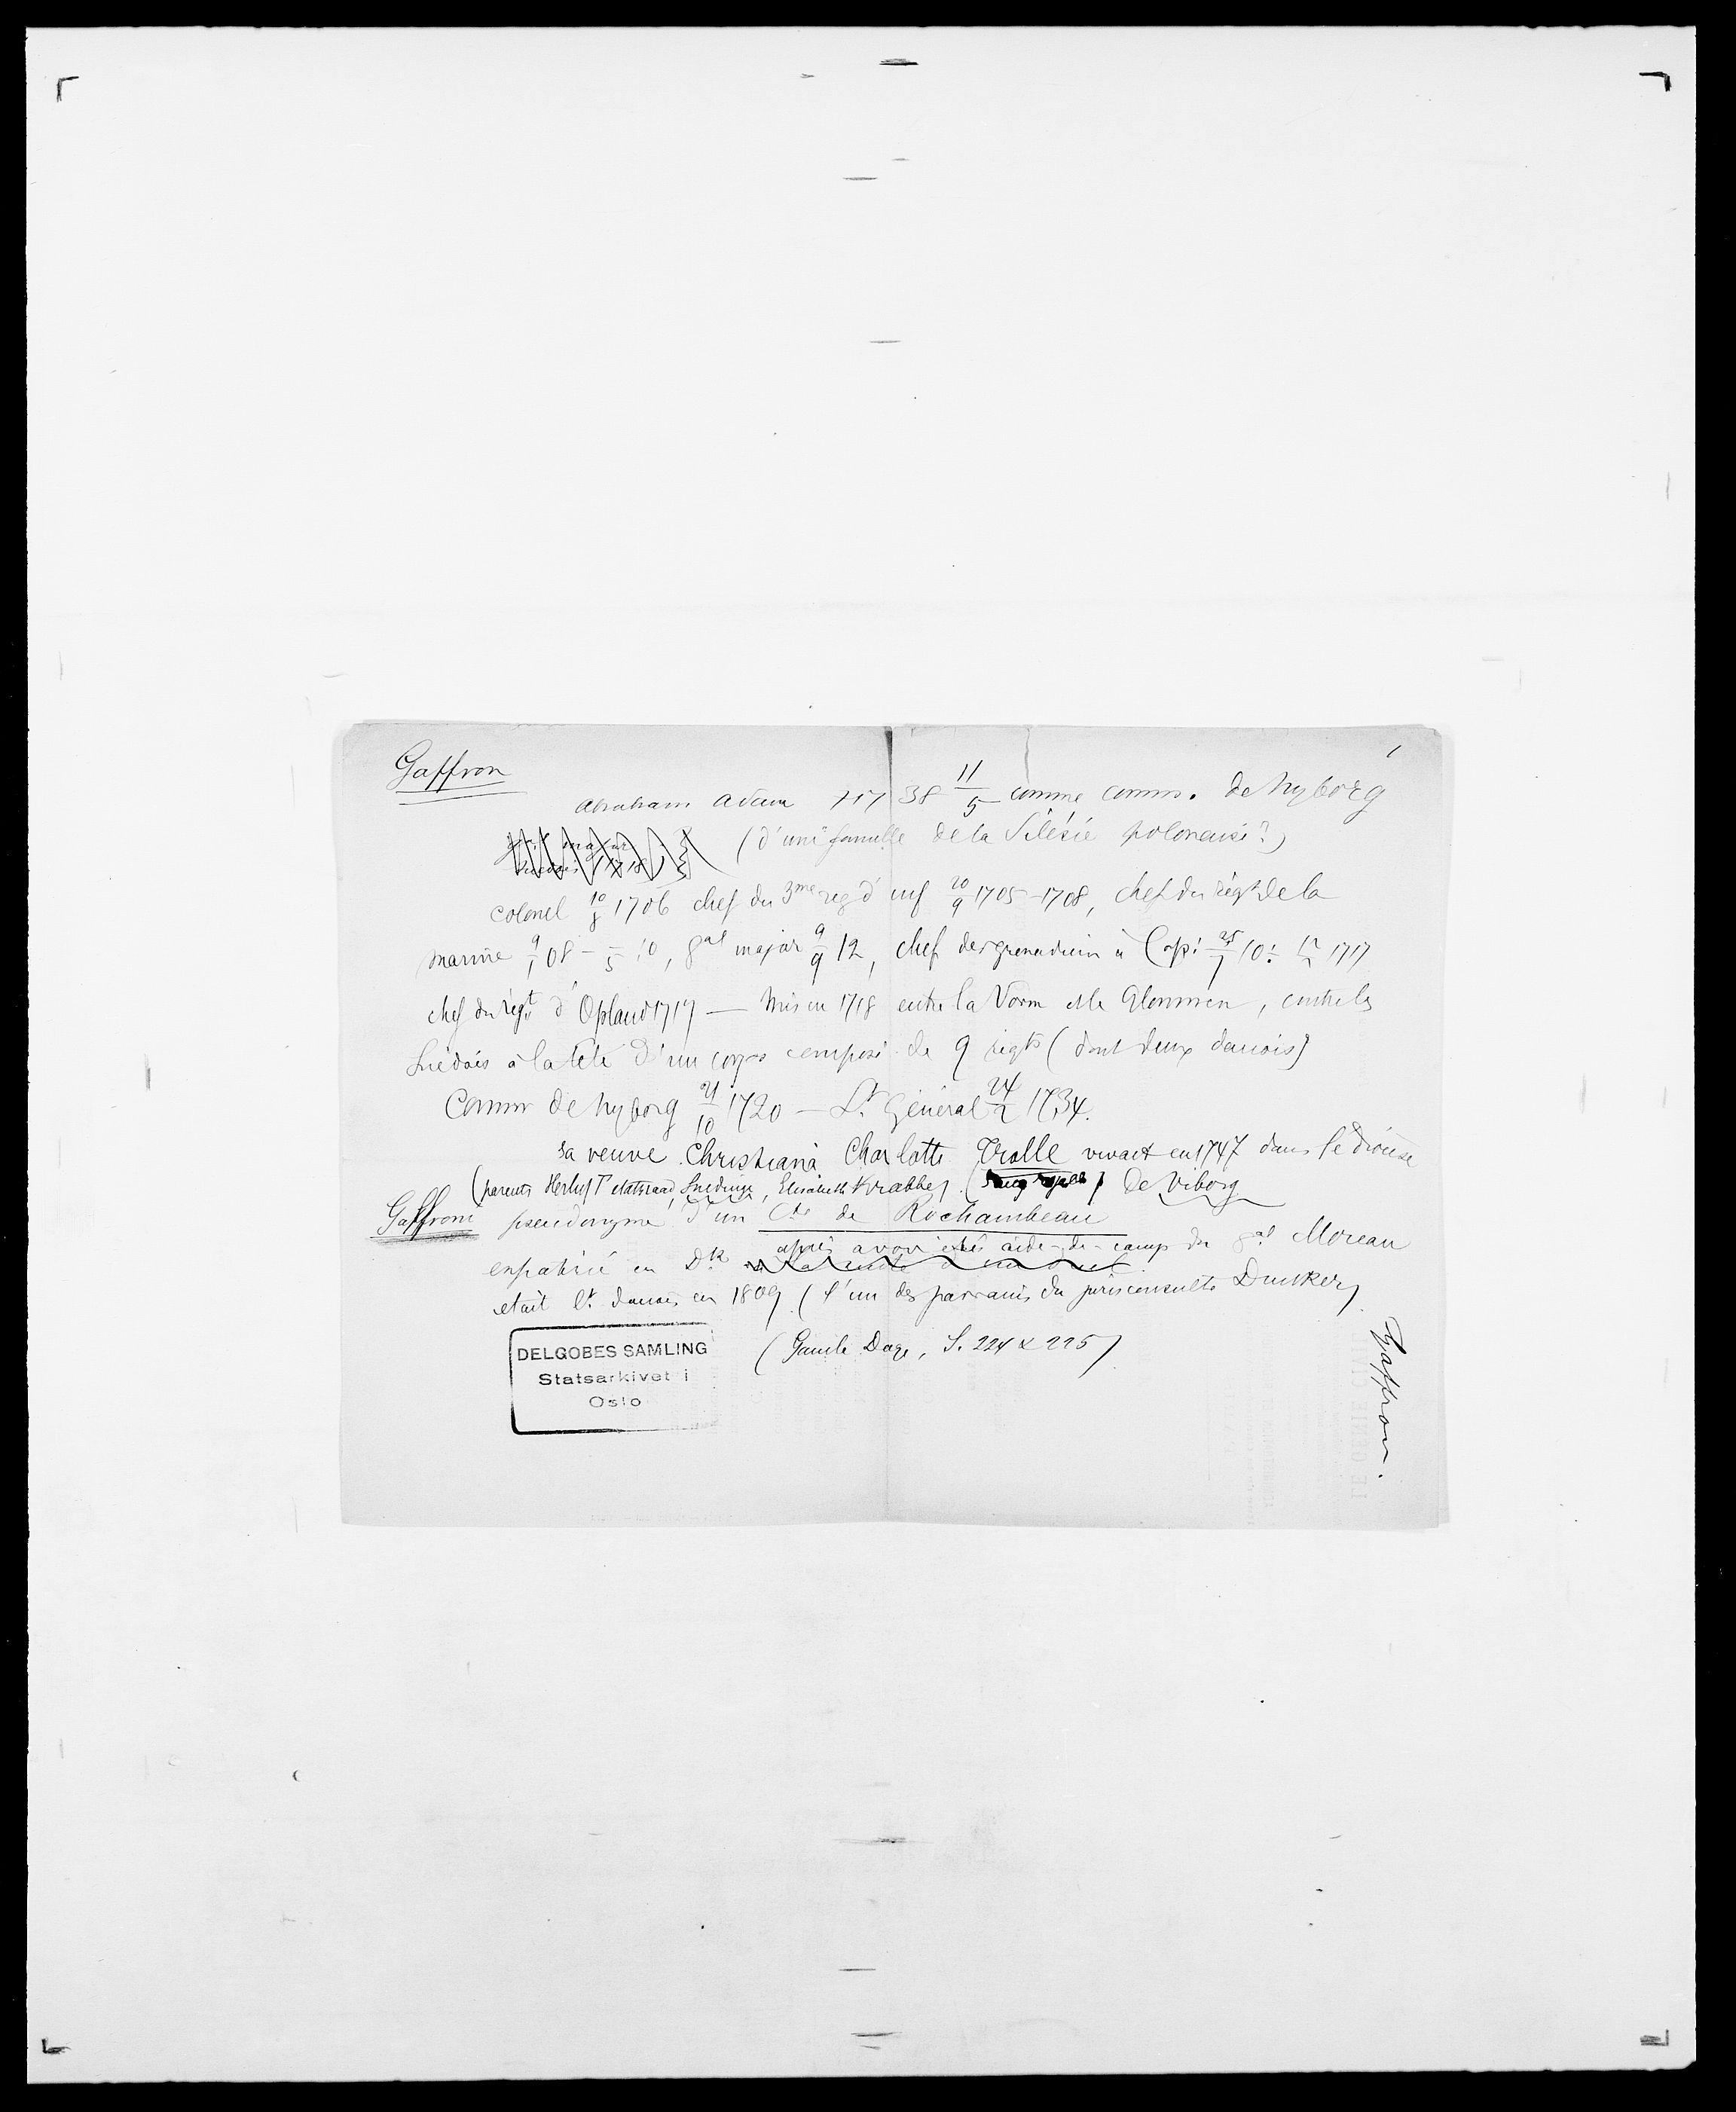 Gaffron
Abraham Adam † 1738 11/5 comme comm. de Nyborg
(d'une famille de la Silésie polonaise?)
colonel 10/8 1706 chef du 3me reg d' inf 20/9 1705-1708, chef du régt de la
marine 9/1 08 - 5 10, gal major 9/9 12, chef des grenadiers à Cop: 25/7 10: 1717
chef du régt d'Opland 1717 — Mis en 1718 entre la Vorm et le Glommen, contre les
Suédois à la tête d'un corps composé de 9 regts (dont deux danois)
Comm de Nyborg 21/10 1720 — Lt Général 24/2 1734.
sa veuve Christiana Charlotte Trolle vivait en 1747 dans le diocèse
(parents Herluf T etatsraad, Snedinge, Elisabeth Krabbe) de Viborg
Gaffroni pseudonyme d'un Cte de Rochambeau
après avoir été aide-de-camp du gal Moreau
expatrié en Dk
etait lt danois en 1809 (l'un des parrains du jurisconsulte Dunker)
(Gamle Dage, S. 224 & 225)
DELGOBES SAMLING
Statsarkivet i
Oslo
Gaffron.